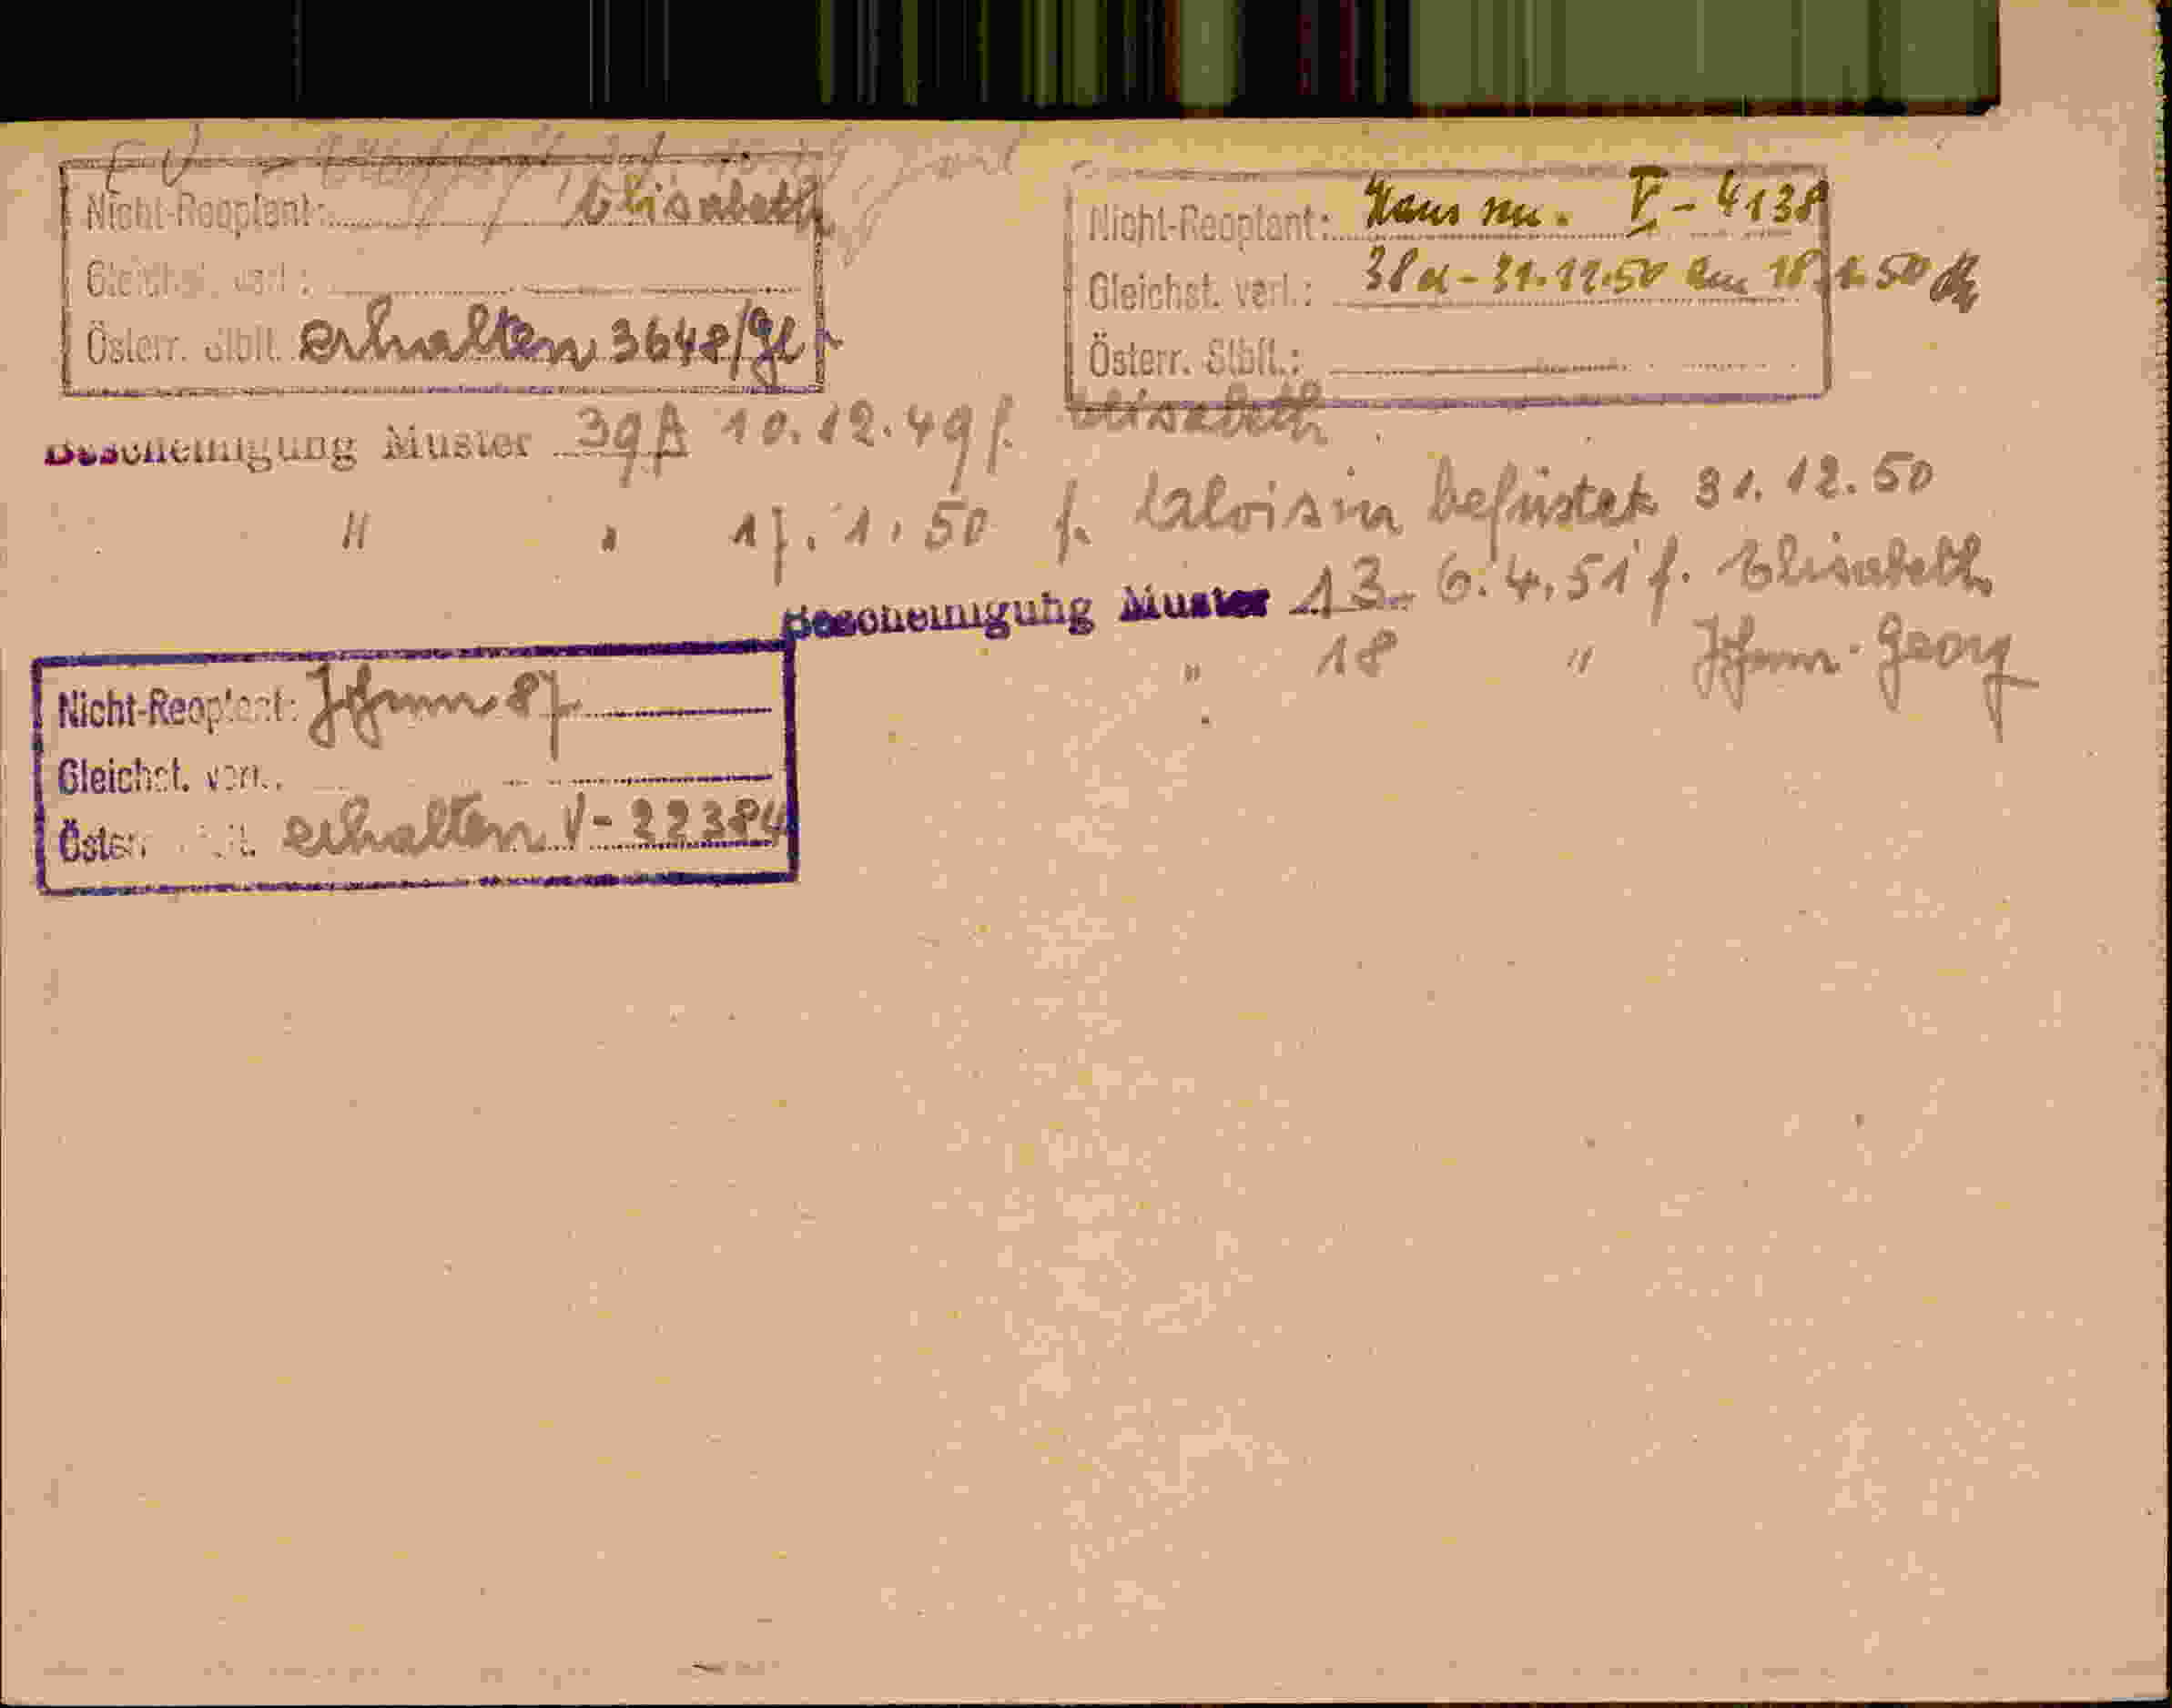 Nicht-Reoptant: Elisabeth
Gleichst. verl.:
Österr. Stbft. erhalten 3648/Gl
Nicht-Reoptant: Hans nu. V-4138
Gleichst. verl.: 38a - 31.12.50 am 18.1.50
Österr. Stbft.:
Bescheinigung Muster 39A 10.12.49 f. Elisabeth
" " 17.1.50 f. Aloisia befristet 31.12.50
Bescheinigung Muster 13 6.4.51 f. Elisabeth
" 18 " Johann-Georg
Nicht-Reoptant: Johann 87
Gleichst. verl.
Österr. erhalten V-22384